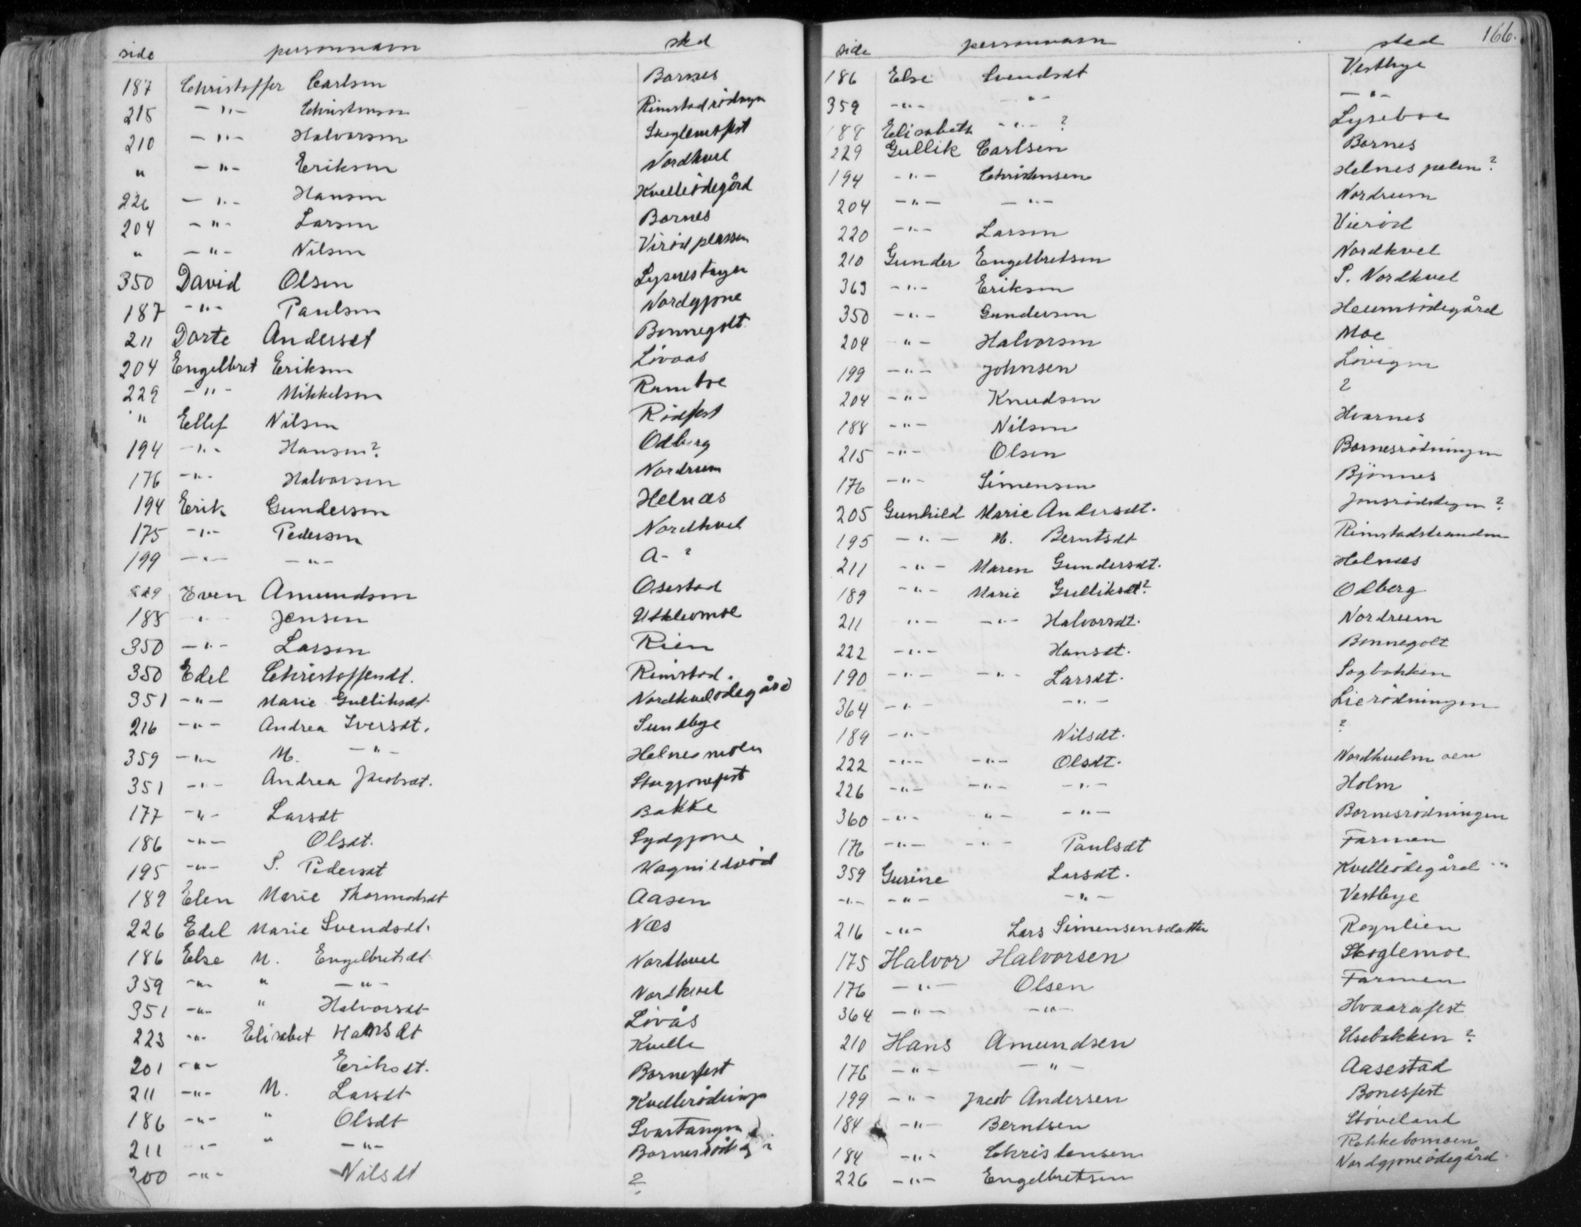 side personnavn sted
187 Christoffer Carlsen Barnes
215 -"- Christensen Rimstadrødngn
210 -"- Halvorsen Skoglemofest
" -"- Eriksen Nordkvel
226 -"- Hansen Kvelleødegård
204 -"- Larsen Barnes
" -"- Nilsen Virødplassen
350 David Olsen
187 -"- Paulsen Nordgjone
211 Dorte Andersdt Bonnegolt
204 Engelbret Eriksen Løvaas
229 -"- Mikkelsen Ramboe
" Ellef Nilsen Rødfest
194 -"- Hansen? Odberg
176 -"- Halvorsen Nordrum
194 Erik Gundersen Helnæs
175 -"- Pedersen Nordkvel
199 -"- -"- A- ?
229 Even Amundsen Osestad
188 -"- Jensen Utklevmoe
350 -"- Larsen Rien
350 Edel Christoffersdt. Rimstad.
351 -"- Marie Gulliksdt Nordkvelødegård
216 -"- Andrea Iversdt. Sundbye
359 -"- M. -"- Helnesmoen
351 -"- Andrea Jacobsdt. Storgjonefest
177 -"- Larsdt Bakke
186 -"- Olsdt. Sydgjone
195 -"- S. Pedersdt Hagnildrød
189 Elen Marie Thormodsdt Aasen
226 Edel Marie Svendsdt. Næs
186 Else M. Engelbretsdt Nordkvel
359 -"- " -"- Nordkvel
351 -"- " Halvorsdt Løvås
223 -"- Elisabet Hansdt Kvelle
201 -"- Eriksdt. Barnesfest
211 -"- M. Larsdt Kvellerødninga
186 -"- " Olsdt Svartangen
211 -"- " -"- Barnesrødng
200 -"- Nilsdt ?
166.
side personnavn sted
186 Else Svendsdt Vestbye
359 -"- -"- -"-
188 Elisabeth -"- ? Lyseboe
229 Gullik Carlsen Barnes
194 -"- Christensen Helnes pelen?
204 -"- -"- Nordrum
220 -"- Larsen Vierød
210 Gunder Engelbretsen Nordkvel
363 -"- Eriksen S. Nordkvel
350 -"- Gundersen Heumsødegård
204 -"- Halvorsen Moe
199 -"- Johnsen Løvigen
204 -"- Knudsen ?
188 -"- Nilsen Hvarnes
215 -"- Olsen Barnesrødningen
176 -"- Simensen Bjønnes
205 Gunhild Marie Andersdt. Jonsrødskgen?
195 -"- M. Berntsdt Rimstadstranden
211 -"- Maren Gundersdt. Helnæs
189 -"- Marie Gulliksdt? Odberg
211 -"- -"- Halvorsdt. Nordrum
222 -"- Hansdt. Bonnegolt
190 -"- -"- Larsdt. Sagbakken
364 -"- -"- Lierødningen
189 -"- Nilsdt. ?
222 -"- -"- Olsdt. Nordkvelmoen
226 -"- -"- -"- Holm
360 -"- " -"- Barnesrødningen
176 -"- -"- Paulsdt Farmen
359 Gurine Larsdt. Kvelleødegård
-"- -"- -"- Vestbye
216 -"- Lars Simensensdatter Røynlien
175 Halvor Halvorsen Skoglemoe
176 -"- Olsen Farmen
364 -"- -"- Hvaarafest
210 Hans Amundsen Usebakken?
176 -"- -"- Aasestad
199 -"- Jacob Andersen Bonesfest
184 -"- Berntsen Støveland
184 -"- Christensen Rakkebomoen
226 -"- Engelbretsen Nordgjoneødegård